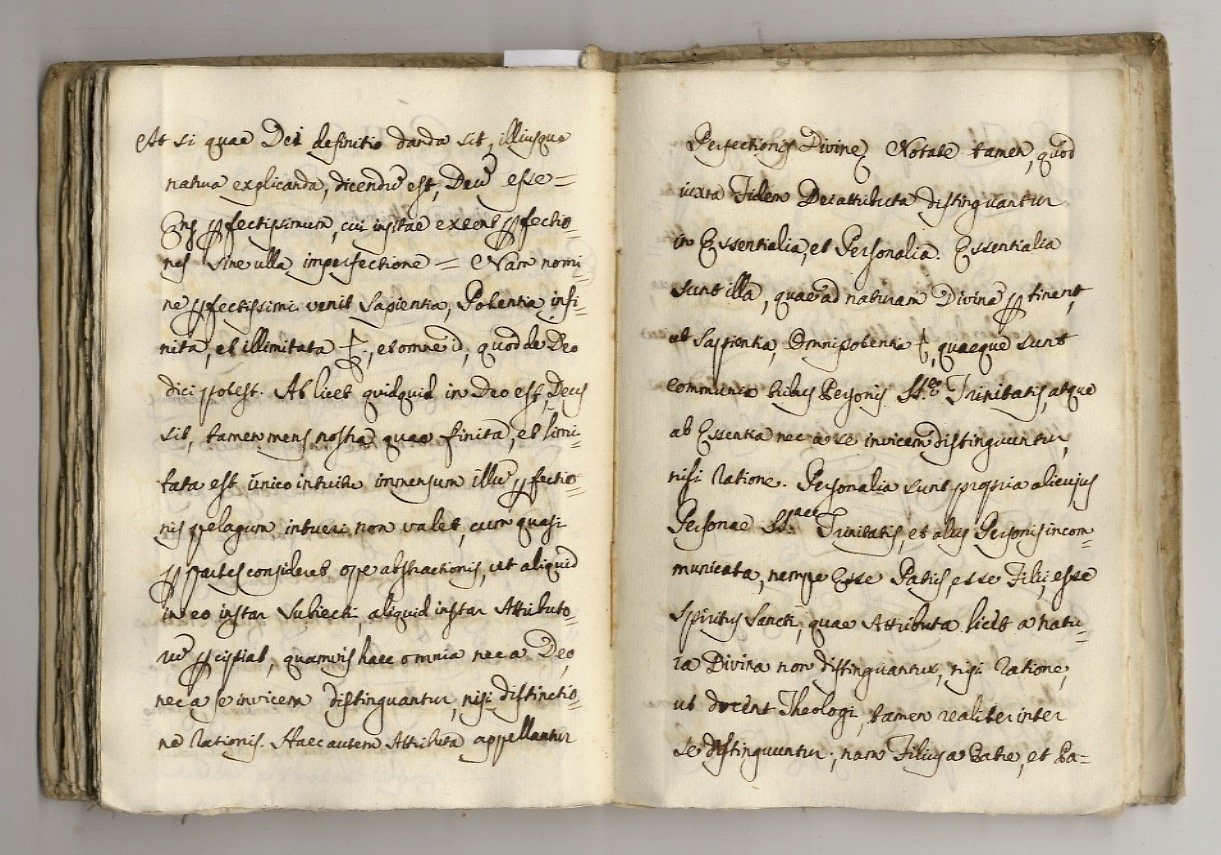 At si quae Dei definitio danda sit, illiusque
natura explicanda, dicendũ est, Deũ esse =
Ens pfectissimum, cui insitae extent pfectio=
nes sine ulla imperfectione = Nam nomi=
ne pfectissimi venit Sapientia, Potentia infi=
nita, et illimitata &, et omne id, quod de Deo
dici potest. At licet quidquid in Deo est, Deus
sit, tamen mens nostra quae finita, et limi=
tata est unico intuitu immensum illũ pfectio=
nis pelagum intueri non valet, cum quasi
p partes consideret ope abstractionis, ut aliquid
in eo instar Subiecti, aliquid instar Attributo=
rũ pcipiat, quamvis haec omnia nec a Deo,
nec a se invicem distinguantur, nisi distinctio=
ne rationis. Haec autem Attributa appellantur
Perfectiones Divine. Notate tamen, quod
iuxta Fidem Dei attributa distinguantur
in Essentialia, et Personalia. Essentialia
sunt illa, quae ad naturam Divinã ptinent,
ut Sapientia, Omnipotentia &, quaeque sunt
communia tribus Personis SS.ae Trinitatis, atque
ab Essentia nec a se invicem distinguuntur,
nisi ratione. Personalia sunt propria alicujus
Personae SS.ae Trinitatis, et aliis Personis incom=
municata, nempe Esse Patris, esse Filii, esse
Spiritus Sancti, quae Attributa licet a natu=
ra Divina non distinguantur, nisi ratione,
ut docent Theologi, tamen realiter inter
se distinguuntur; nam Filius a Patre, et Pa=